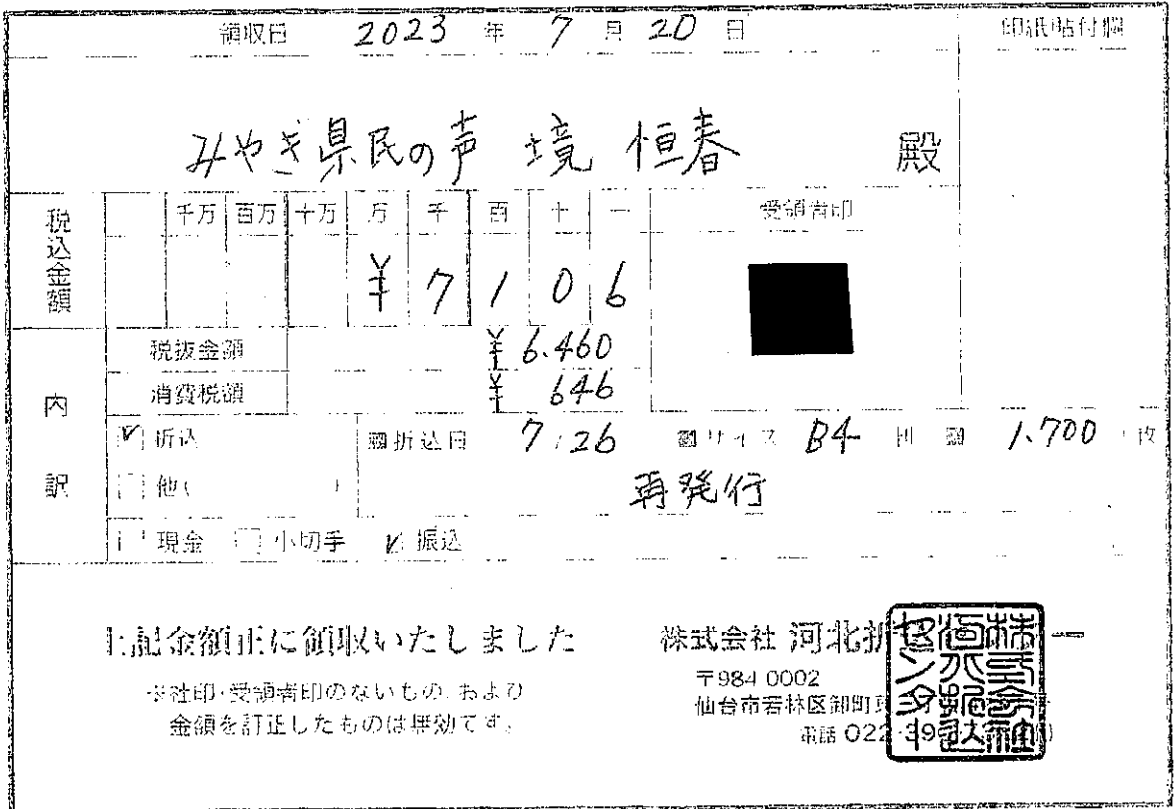 領収日 2023 年 7 月 20 日
印紙貼付欄
みやぎ県民の声 境 恒春 殿
税込金額
千万 百万 十万 万 千 百 十 一
受領者印
¥ 7 1 0 6
内訳
税抜金額 ¥ 6.460
消費税額 ¥ 646
折込 折込日 7 26 サイズ B4 1.700 枚
他( )
再発行
現金 小切手 振込
上記金額正に領収いたしました
※社印・受領者印のないもの、および
金額を訂正したものは無効です。
株式会社 河北折
〒984 0002
仙台市若林区卸町東
電話 022-39
株式会社河北折込センター